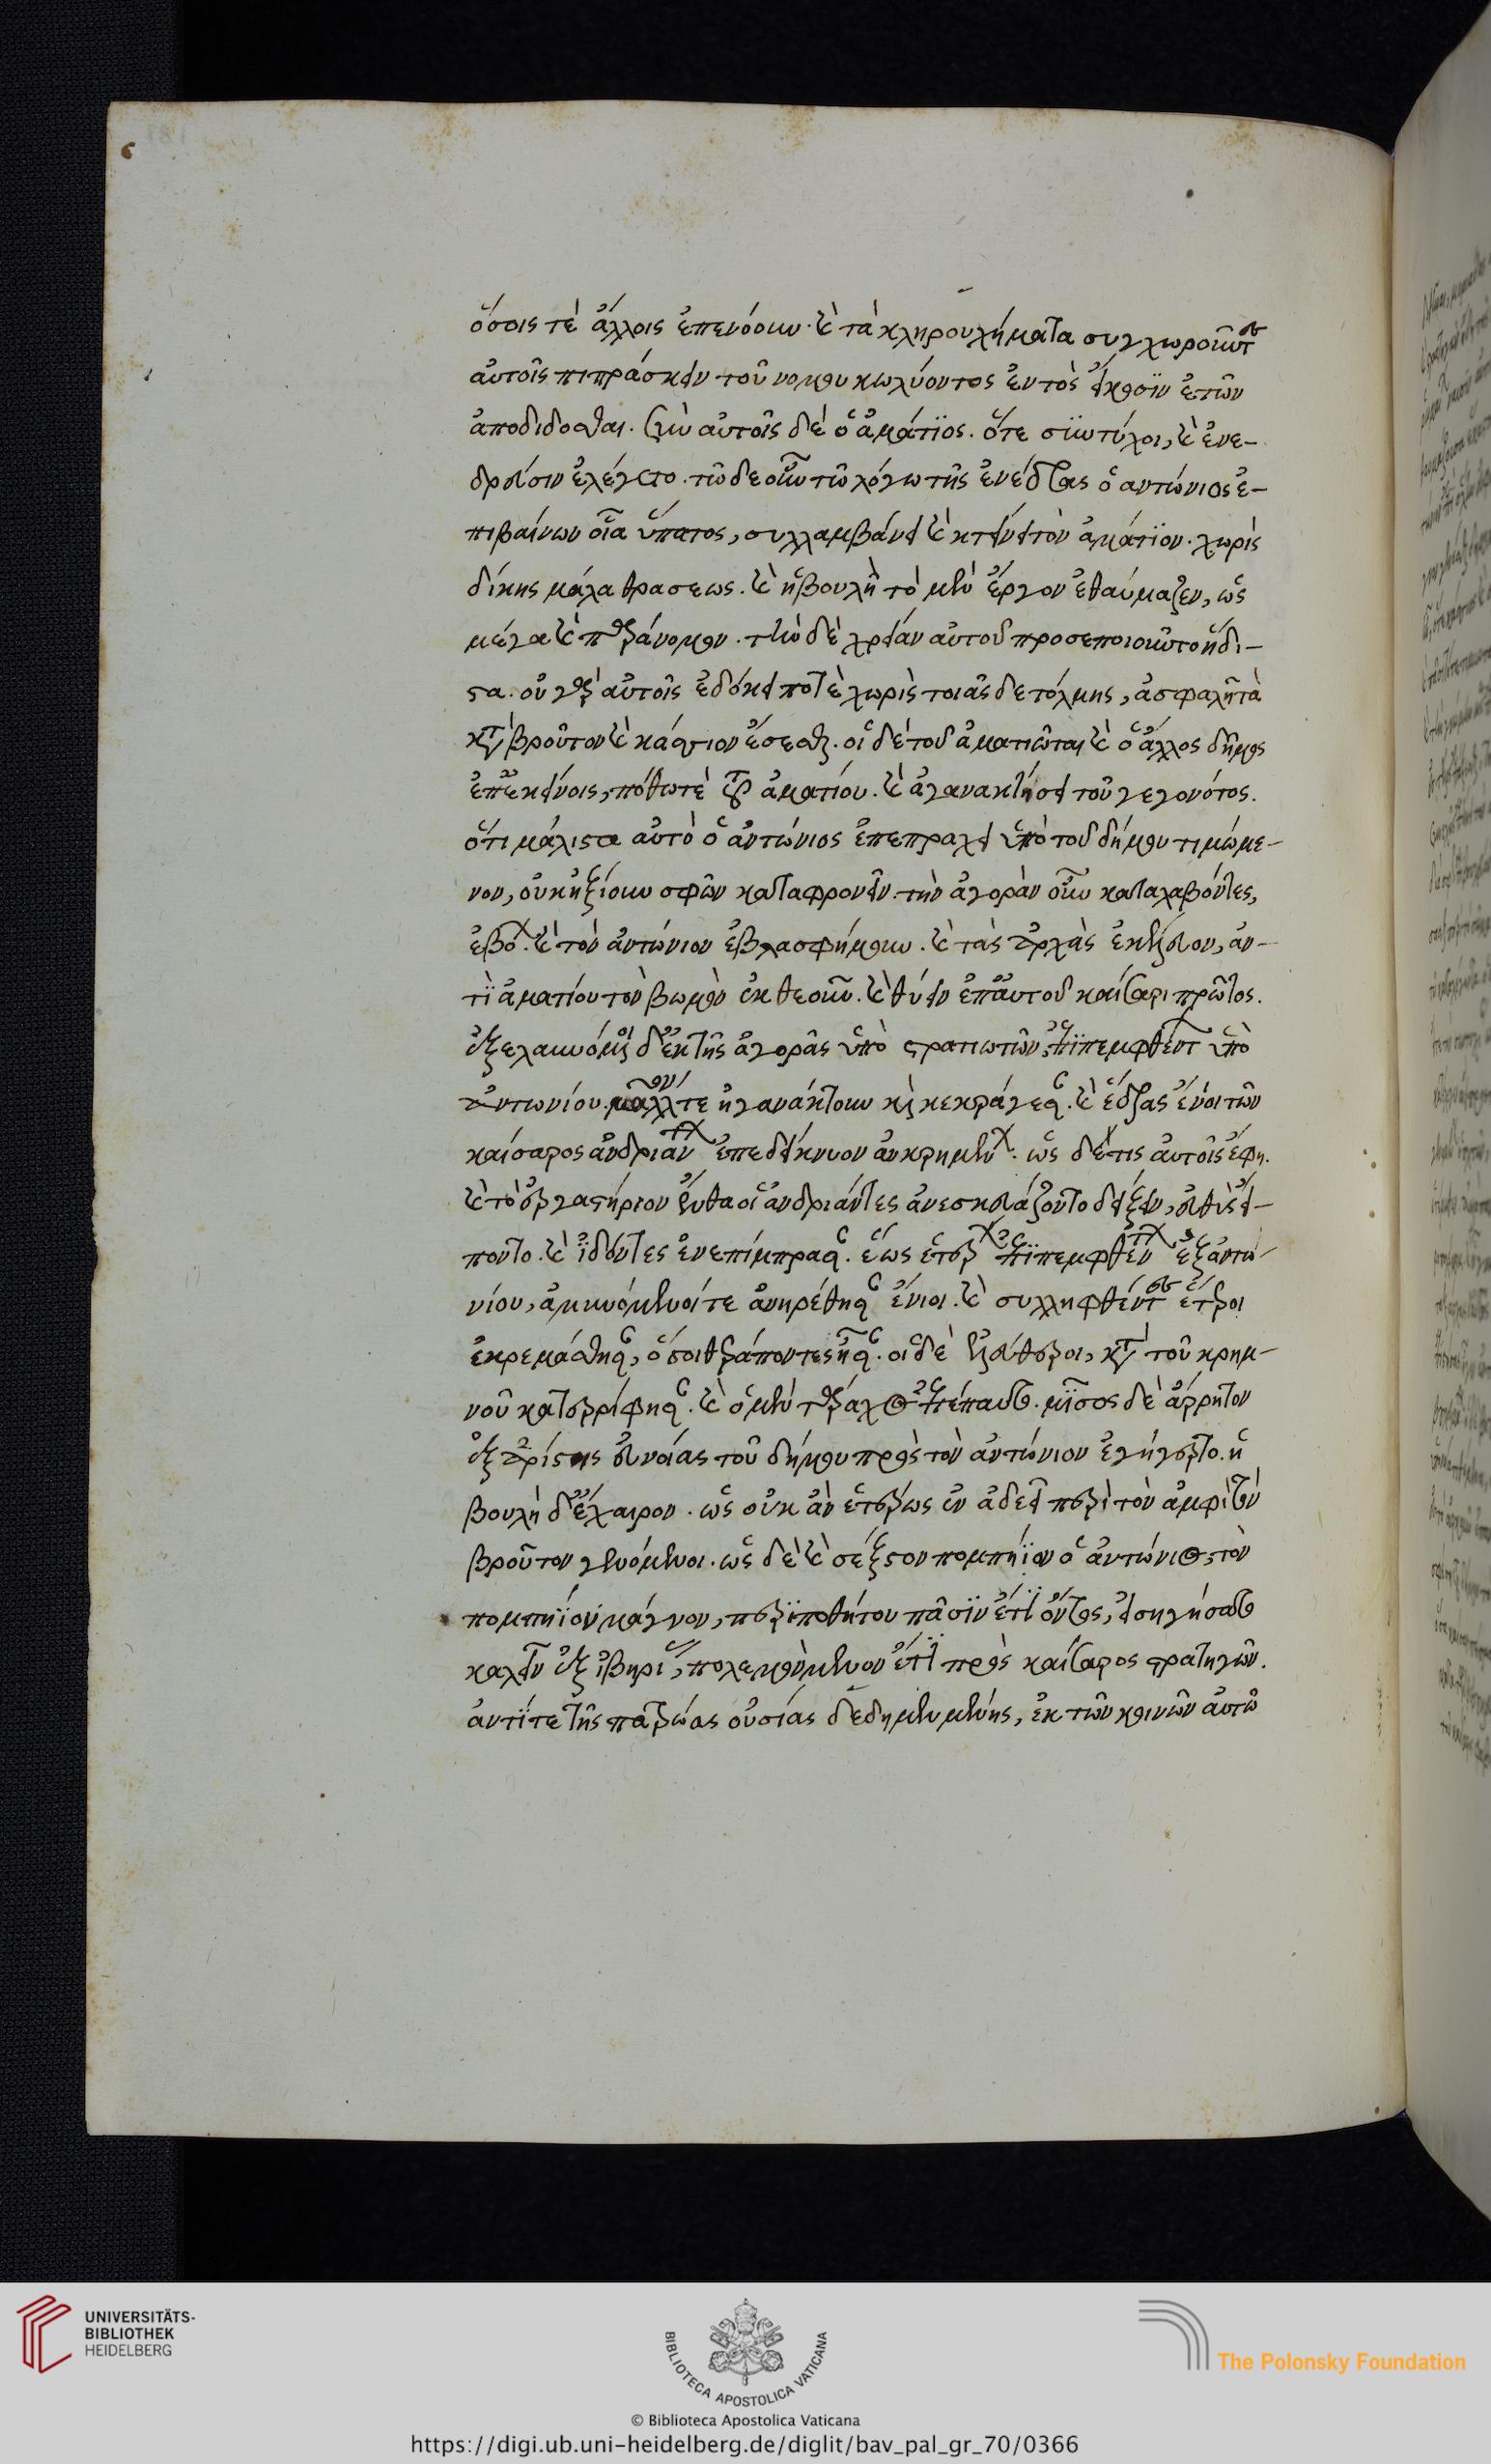 ὅσοις τὲ ἄλλοις ἐπενόουν. καὶ τὰ κληρουχήματα συγχωροῦντες
αὐτοῖς πιπράσκειν τοῦ νόμου κωλύοντος ἐντὸς εἴκοσϊν ἐτῶν
ἀποδίδοσθαι. σὺν αὐτοῖς δὲ ὁ ἀμάτϊος. ὅτε συντύχοι, καὶ ἐνε-
δρεύσιν ἐλέγετο. τῶ δε οὖν τῶ λόγω τῆς ἐνέδρας ὁ αντώνιος ἐ-
πιβαίνων οἷα ὕπατος, συλλαμβάνει καὶ κτείνει τὸν ἀμάτϊον. χωρὶς
δίκης μάλα θρασεως. καὶ ἡ βουλὴ τὸ μὲν ἔργον ἐθαύμαζεν, ὡς
μέγα καὶ παράνομον. τὴν δὲ χρείαν αὐτοῦ προσεποιοῦντο ἥδι-
στα. οὐ γὰρ αὐτοῖς ἐδόκει ποτὲ χωρὶς τοιᾶς δε τόλμης, ἀσφαλῆ τὰ
κατὰ βροῦτον καὶ κάσσιον ἔσεσθαι. οἱ δὲ τοῦ ἀματιῶται καὶ ὁ ἄλλος δῆμος
ἐπ' ἐκείνοις, πόθω τὲ τοῦ αματίου. καὶ ἀγανακτήσει τοῦ γεγονότος.
ὅτι μάλιστα αὐτὸ ὁ ἀντώνιος ἐπεπραχει ὑπὸ τοῦ δήμου τιμώμε-
νον, οὐκ ἠξίουν σφῶν καταφρονεῖν. τὴν ἀγορὰν οὖν καταλαβόντες,
ἐβόων. καὶ τὸν ἀντώνιον ἐβλασφήμουν. καὶ τὰς ἀρχὰς ἐκέλευον, ἀν-
τϊ ἀματίου τὸν βωμὸν ἐκθεοῦν. καὶ θύειν ἐπ' αὐτοῦ καίσαρι πρώτος.
ἐξελαυνόμενοι δ' ἐκ τῆς ἀγορᾶς ὑπὸ στρατιωτῶν, ἐπϊπεμφθέντων ὑπὸ
ἀντωνίου. μᾶλλόν τε ἠγανάκτουν καὶ κεκράγεσαν. καὶ ἕδρας ἔνϊοι τῶν
καίσαρος ἀνδριάντων ἐπεδείκνυον ἀνῃρημένων. ὡς δέ τις αὐτοῖς ἔφη.
καὶ τὸ ἐργαστήριον ἔνθα οἱ ἀνδριάντες ἀνεσκευάζοντο δείξειν, εὐθὺς εἵ-
ποντο. καὶ ἰδόντες ἐνεπίμπρασαν. ἕως ἑτέρων ἐπϊπεμφθέντων ἐξ ἀντω-
νίου, ἀμυνόμενοί τε ἀνῃρέθησαν ἔνιοι. καὶ συλληφθέντες ἕτεροι
ἐκρεμάσθησαν, ὅσοι θεράποντες ἦσαν. οἱ δὲ ἐλεύθεροι, κατὰ τοῦ κρημ-
νοῦ κατερρίφησαν. καὶ ὁ μὲν τάραχος ἐπέπαυτο. μῖσος δὲ ἄρρητον
ἐξ ἀρίστης εὐνοίας τοῦ δήμου πρὸς τὸν ἀντώνιον ἐγήγερτο. ἡ
βουλὴ δ' ἔχαιρον. ὡς οὐκ ἂν ἑτέρως ἐν ἀδεεῖ περὶ τὸν ἀμφὶ τὸν
βροῦτον γενόμενοι. ὡς δὲ καὶ σέξστον πομπήϊον ὁ ἀντώνιος, τὸν
πομπηΐου μάγνου, περϊποθήτου πᾶσϊν ἔτϊ ὄντος, εἰσηγήσατο
καλεῖν ἐξ ἰβηρίας, πολεμούμενον ἔτϊ πρὸς καίσαρος στρατηγῶν.
ἀντί τε τῆς πατρώας οὐσίας δεδημευμένης, ἐκ τῶν κοινῶν αὐτῶ
UNIVERSITÄTS-
BIBLIOTHEK
HEIDELBERG
BIBLIOTECA APOSTOLICA VATICANA
The Polonsky Foundation
© Biblioteca Apostolica Vaticana
https://digi.ub.uni-heidelberg.de/diglit/bav_pal_gr_70/0366